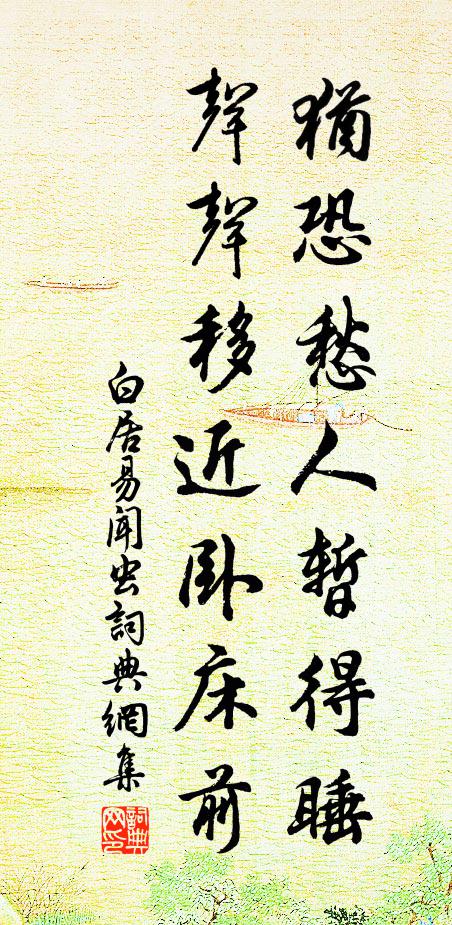 猶恐愁人暫得睡
聲聲移近卧床前
白居易聞虫詞典網集
詞典網印